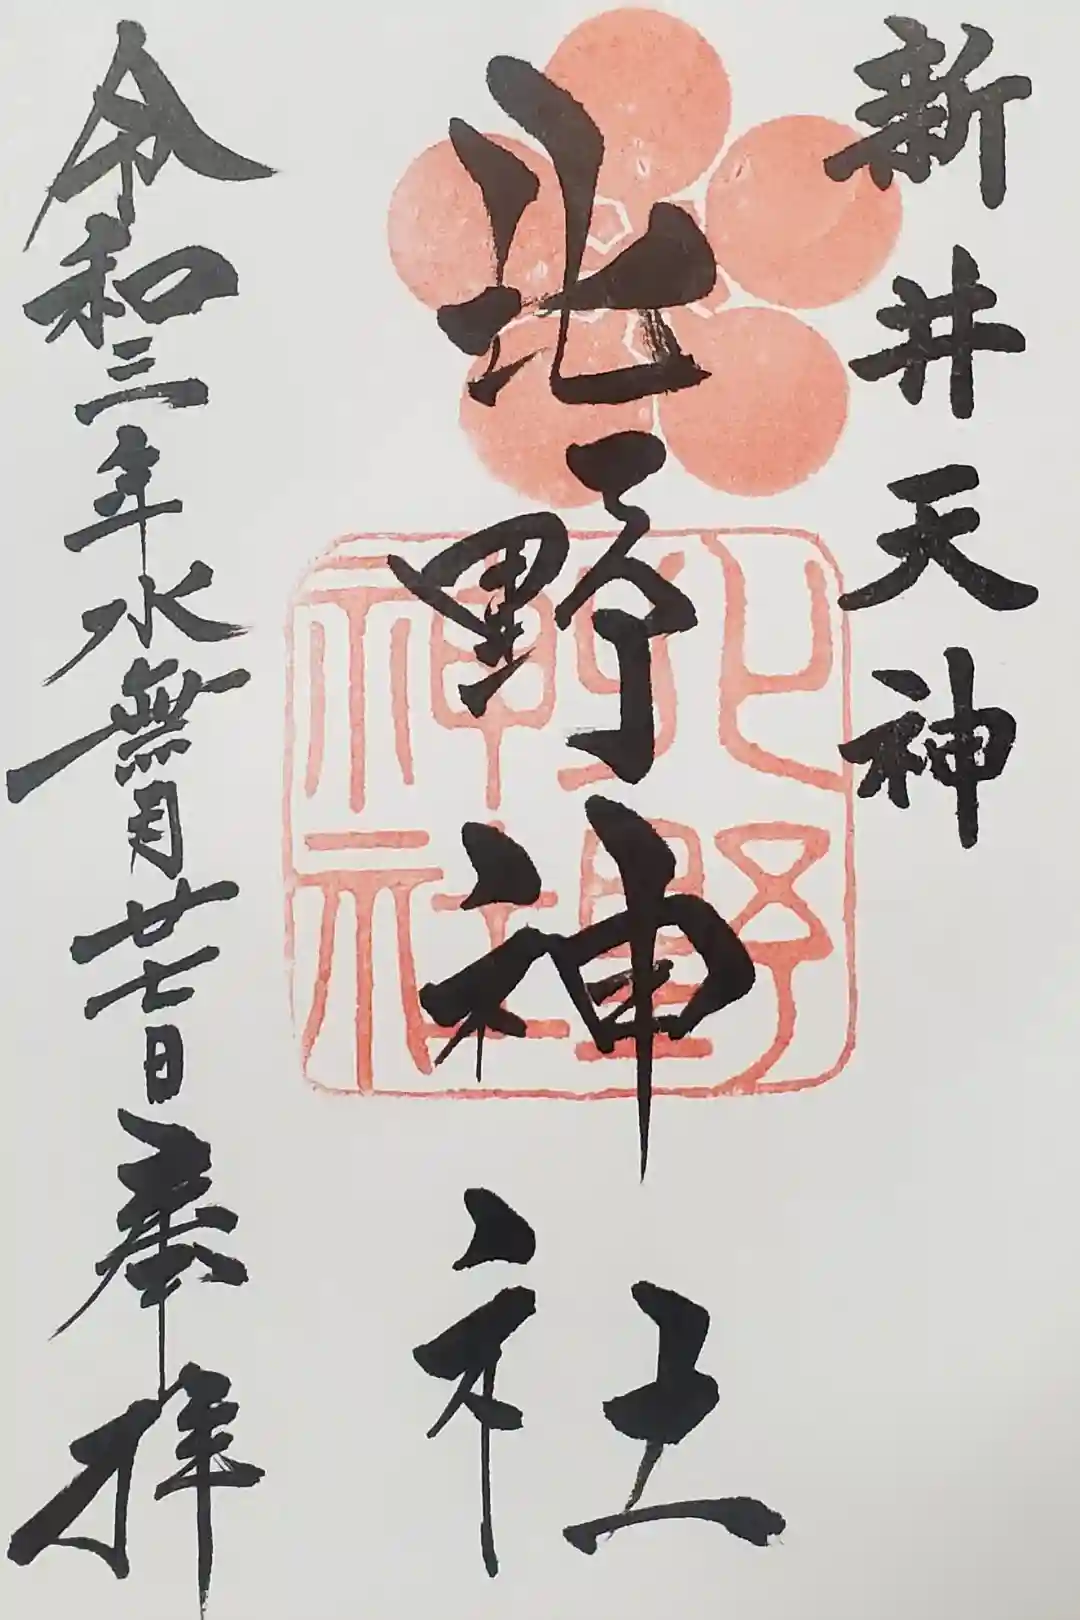 新井天神
北野神社
北野神社
令和三年水無月廿七日奉拝